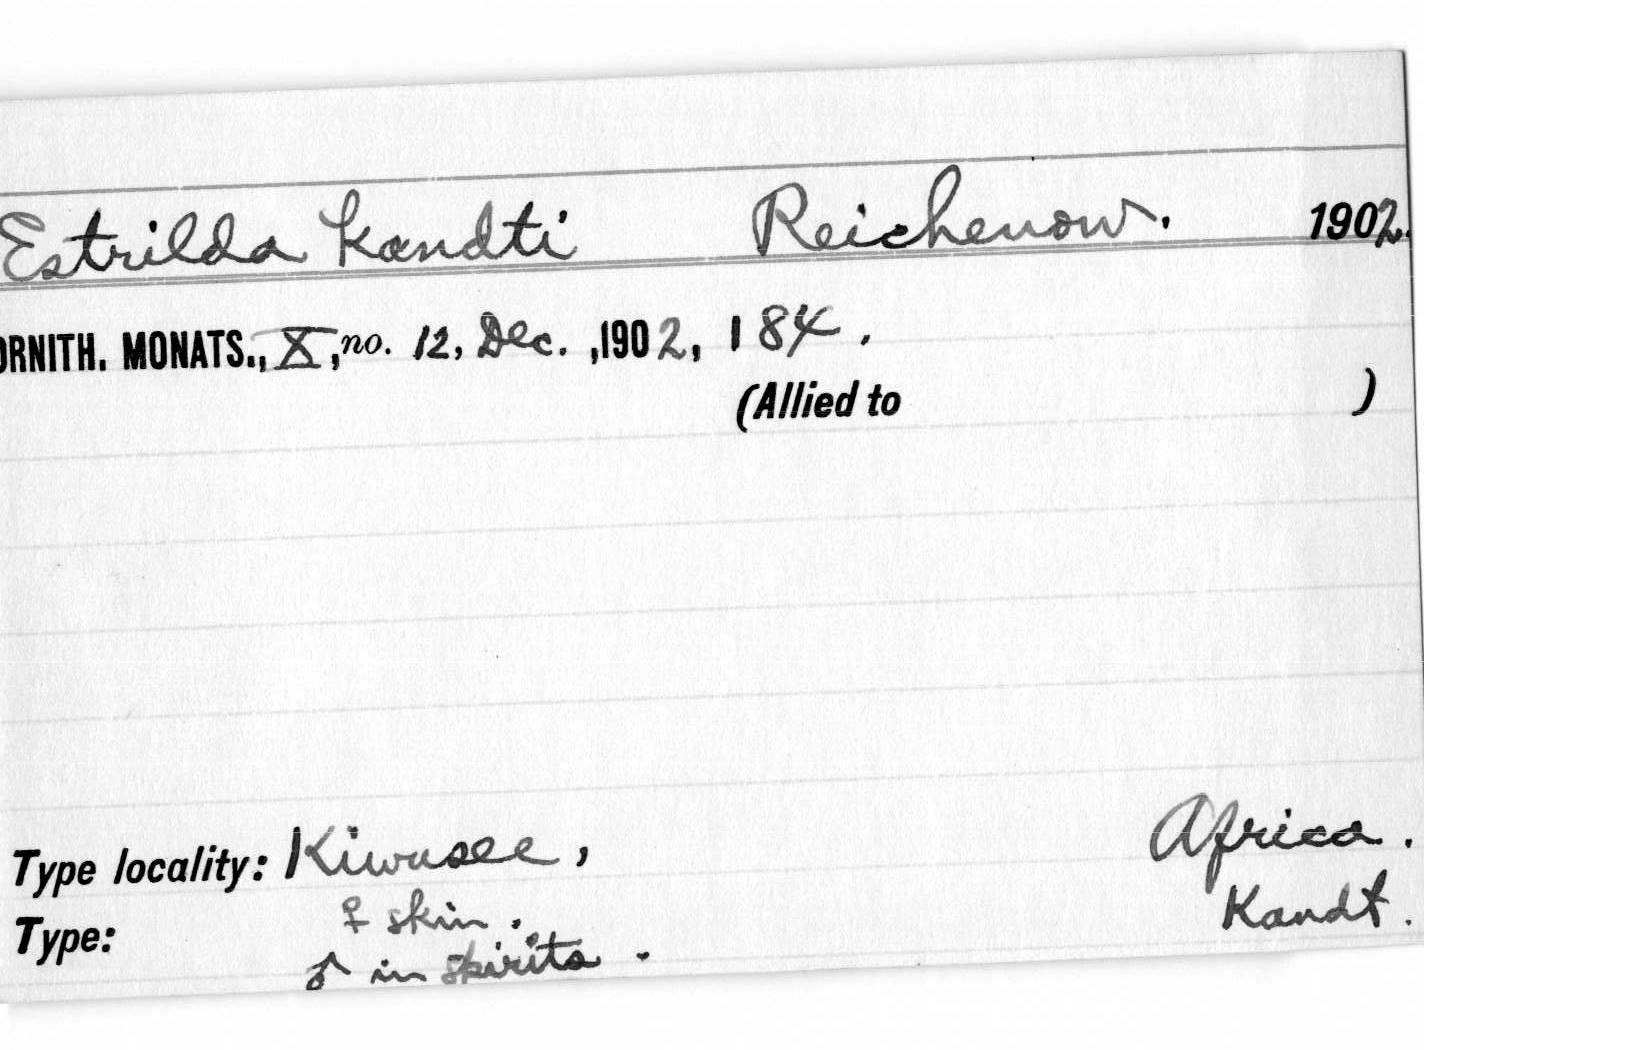 Estrilda kandti Reichenow. 1902.
ORNITH. MONATS., X, no. 12, Dec. ,1902, 184.
(Allied to )
Type locality: Kiwusee, Africa.
Type: ♀ skin. Kandt.
♂ in spirits.